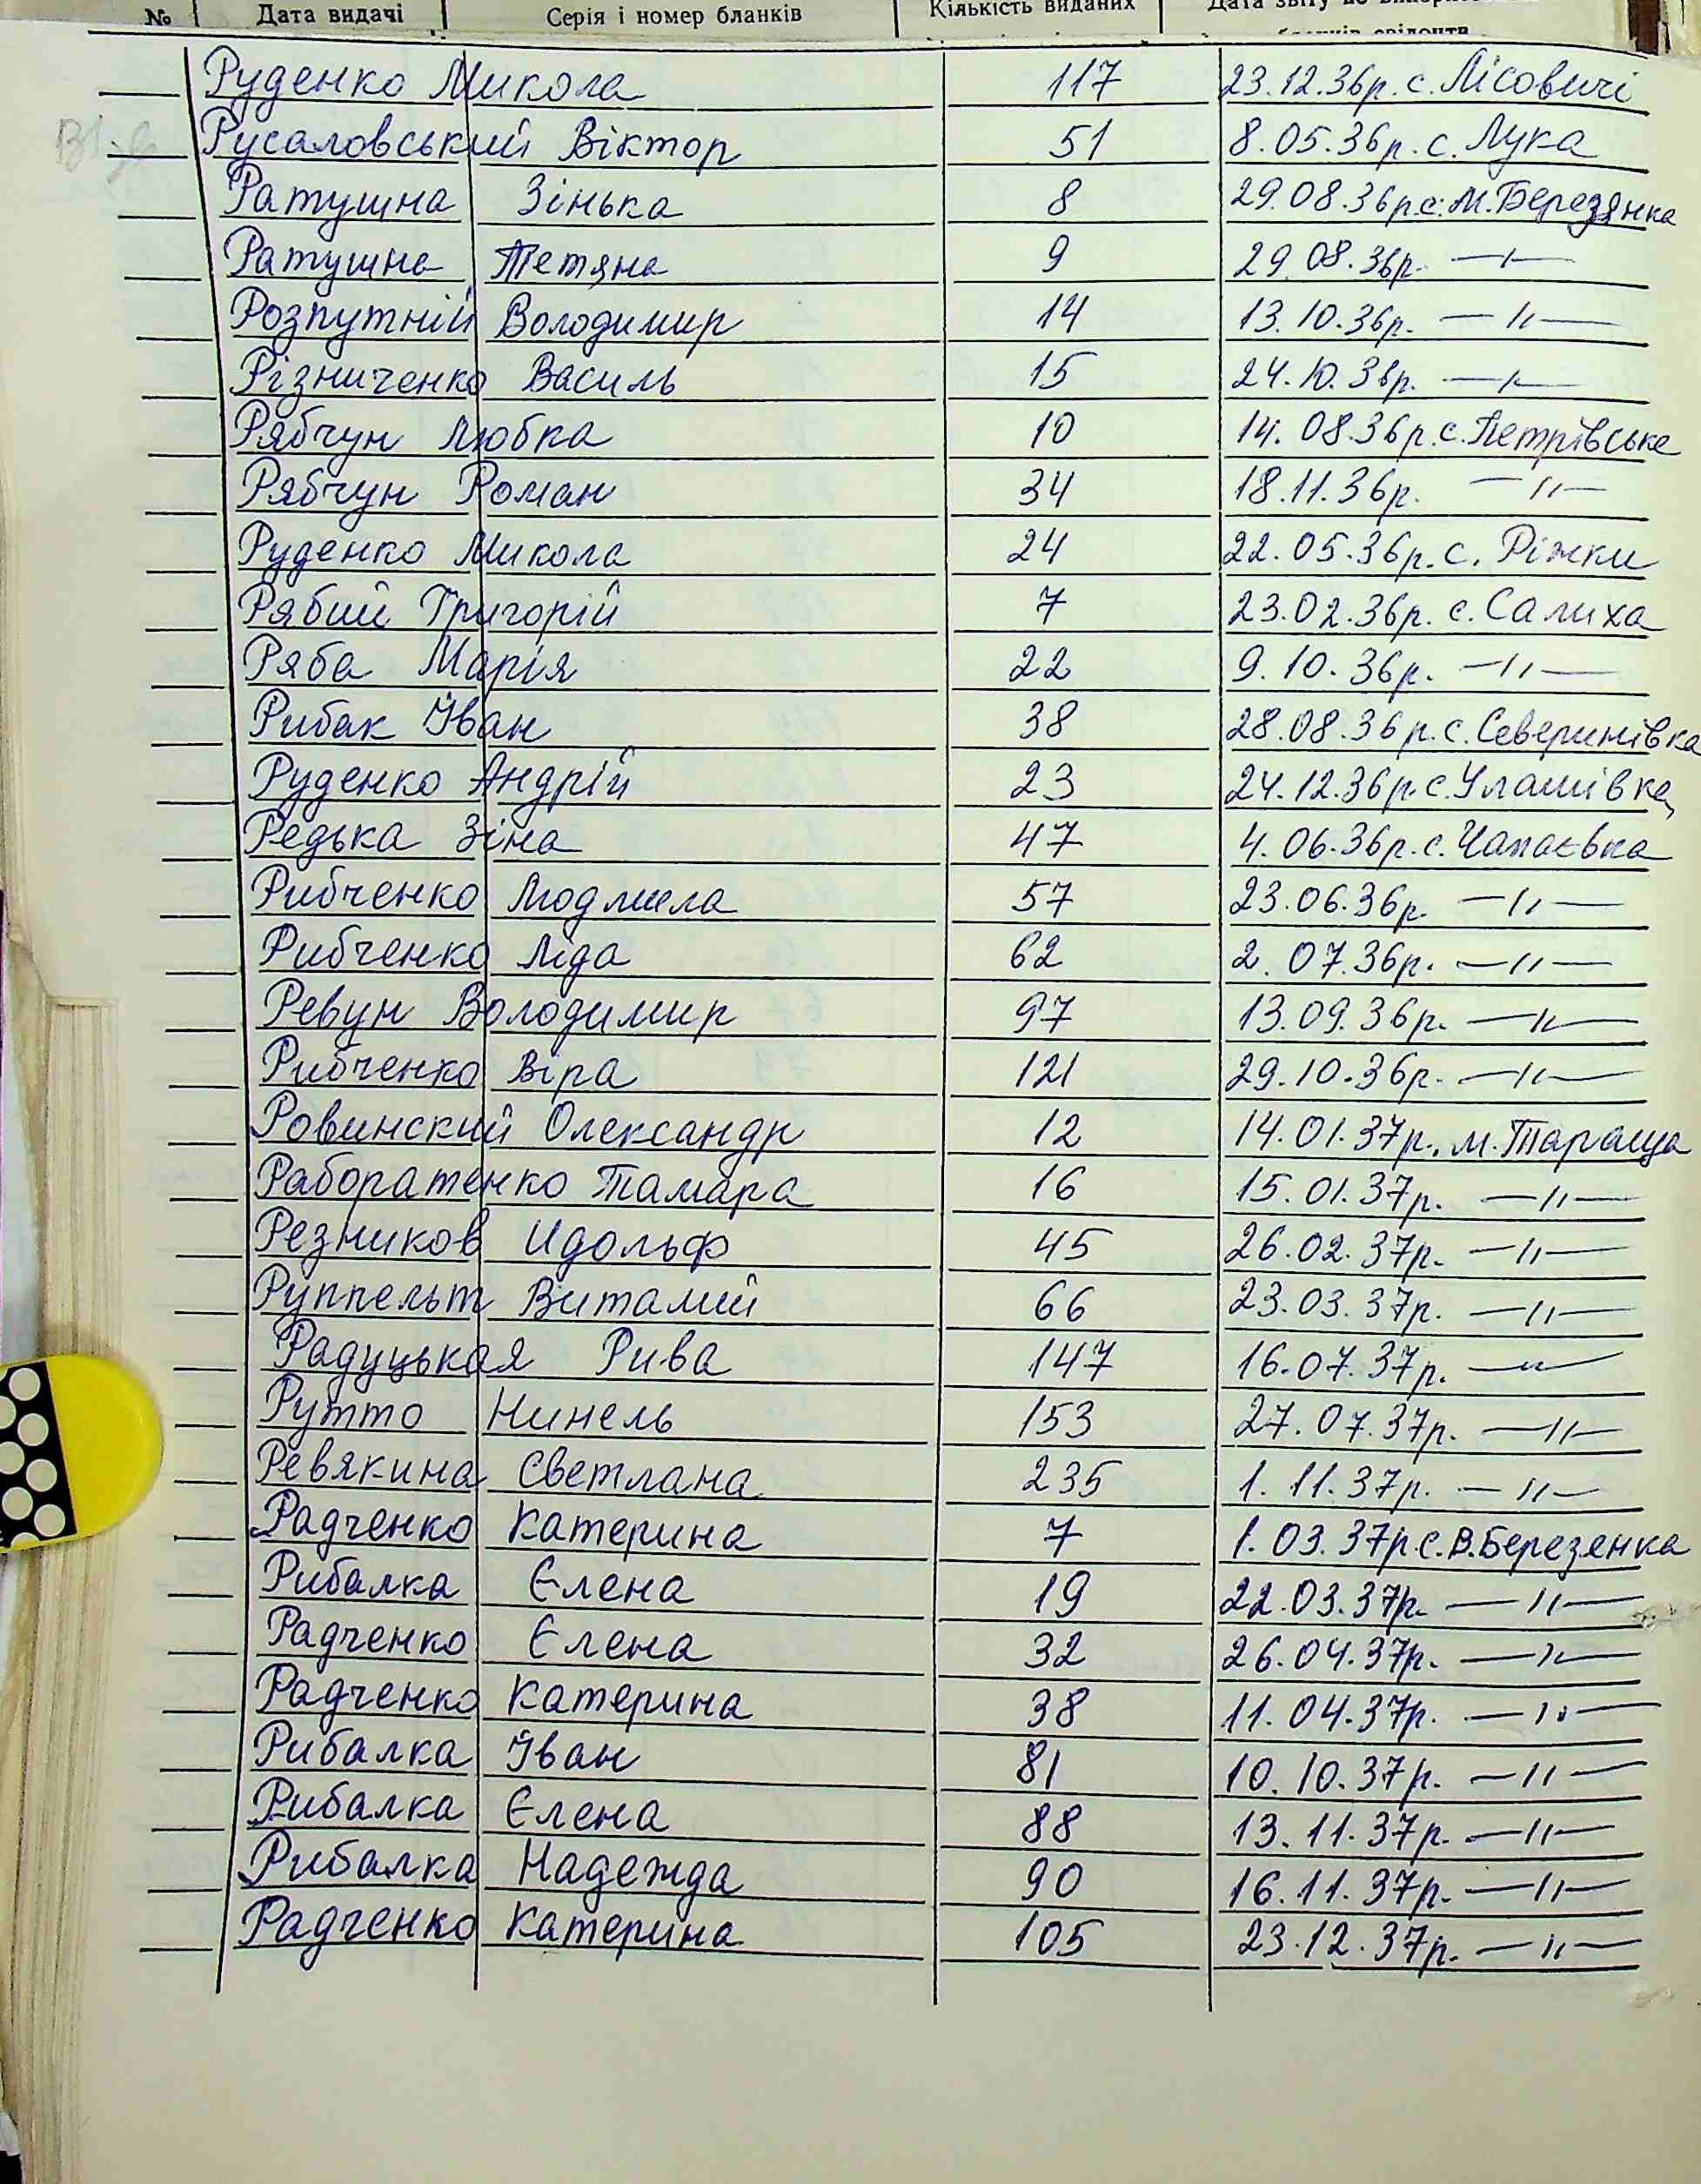 № Дата видачі Серія і номер бланків Кількість виданих
Руденко Микола 117 23.12.36р. с. Лісовичі
Русаловський Віктор 51 8.05.36р. с. Лука
Ратушна Зінька 8 29.08.36р. с. М. Березянка
Ратушна Тетяна 9 29.08.36р. —〃—
Розпутній Володимир 14 13.10.36р. —〃—
Різниченко Василь 15 24.10.36р. —〃—
Рябчун Любка 10 14.08.36р. с. Петрівське
Рябчун Роман 34 18.11.36р. —〃—
Руденко Микола 24 22.05.36р. с. Ріжки
Рябий Григорій 7 23.02.36р. с. Салиха
Ряба Марія 22 9.10.36р. —〃—
Рибак Іван 38 28.08.36р. с. Северинівка
Руденко Андрій 23 24.12.36р. с. Улашівка
Редька Зіна 47 4.06.36р. с. Чапаєвка
Рибченко Людмила 57 23.06.36р. —〃—
Рибченко Ліда 62 2.07.36р. —〃—
Ревун Володимир 97 13.09.36р. —〃—
Рибченко Віра 121 29.10.36р. —〃—
Ровинский Олександр 12 14.01.37р. м. Тараща
Раборатенко Тамара 16 15.01.37р. —〃—
Резников Идольф 45 26.02.37р. —〃—
Руппельт Виталий 66 23.03.37р. —〃—
Радуцькая Рива 147 16.07.37р. —〃—
Рутто Нинель 153 27.07.37р. —〃—
Ревякина Светлана 235 1.11.37р. —〃—
Радченко Катерина 7 1.03.37р. с. В. Березенка
Рибалка Єлена 19 22.03.37р. —〃—
Радченко Єлена 32 26.04.37р. —〃—
Радченко Катерина 38 11.04.37р. —〃—
Рибалка Іван 81 10.10.37р. —〃—
Рибалка Єлена 88 13.11.37р. —〃—
Рибалка Надежда 90 16.11.37р. —〃—
Радченко Катерина 105 23.12.37р. —〃—